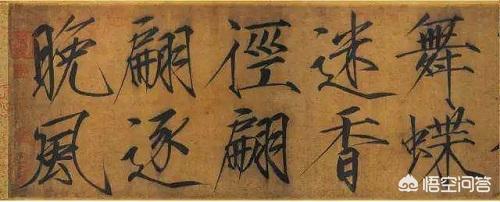 舞蝶
迷香
徑翩
翩逐
晚風
悟空问答